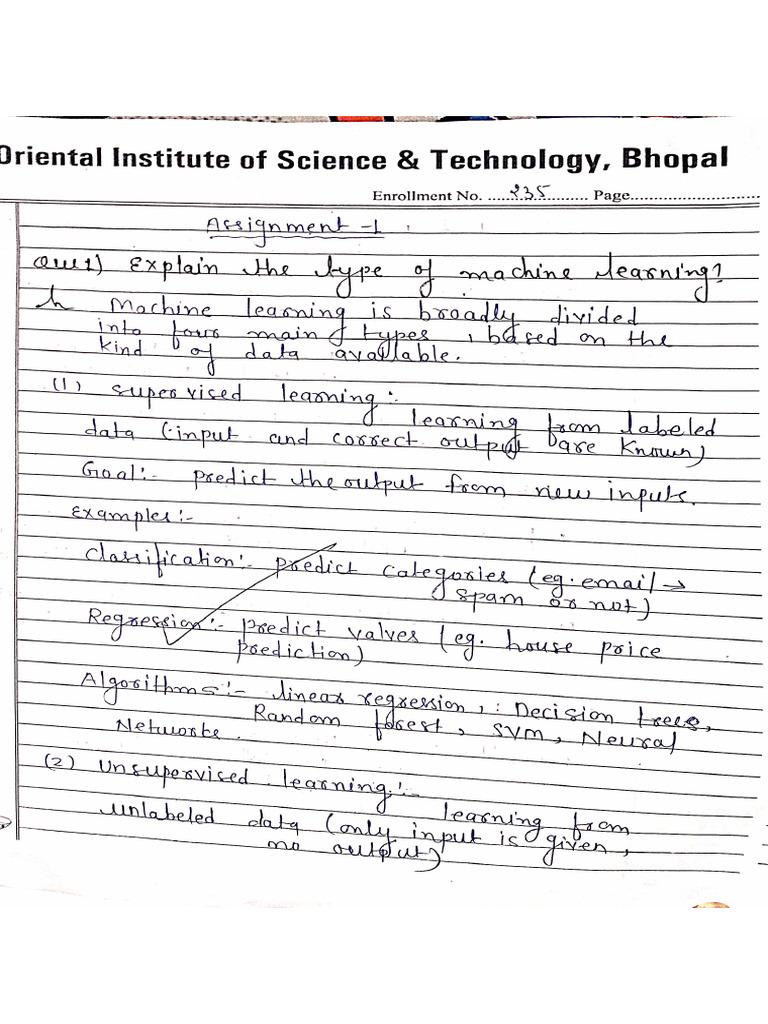 Oriental Institute of Science & Technology, Bhopal
Enrollment No. ......235.......... Page...........................
Assignment -1
Que1) Explain the type of machine learning?
Machine learning is broadly divided
into four main types, based on the
kind of data available.
(1) Supervised learning:-
learning from labeled
data (input and correct output are known)
Goal:- predict the output from new inputs.
Examples:-
Classification:- predict categories (eg. email →
spam or not)
Regression:- predict valves (eg. house price
prediction)
Algorithms:- linear regression, : Decision trees,
Random forest, SVM, Neural
Networks.
(2) Unsupervised learning:-
learning from
unlabeled data (only input is given,
no output)